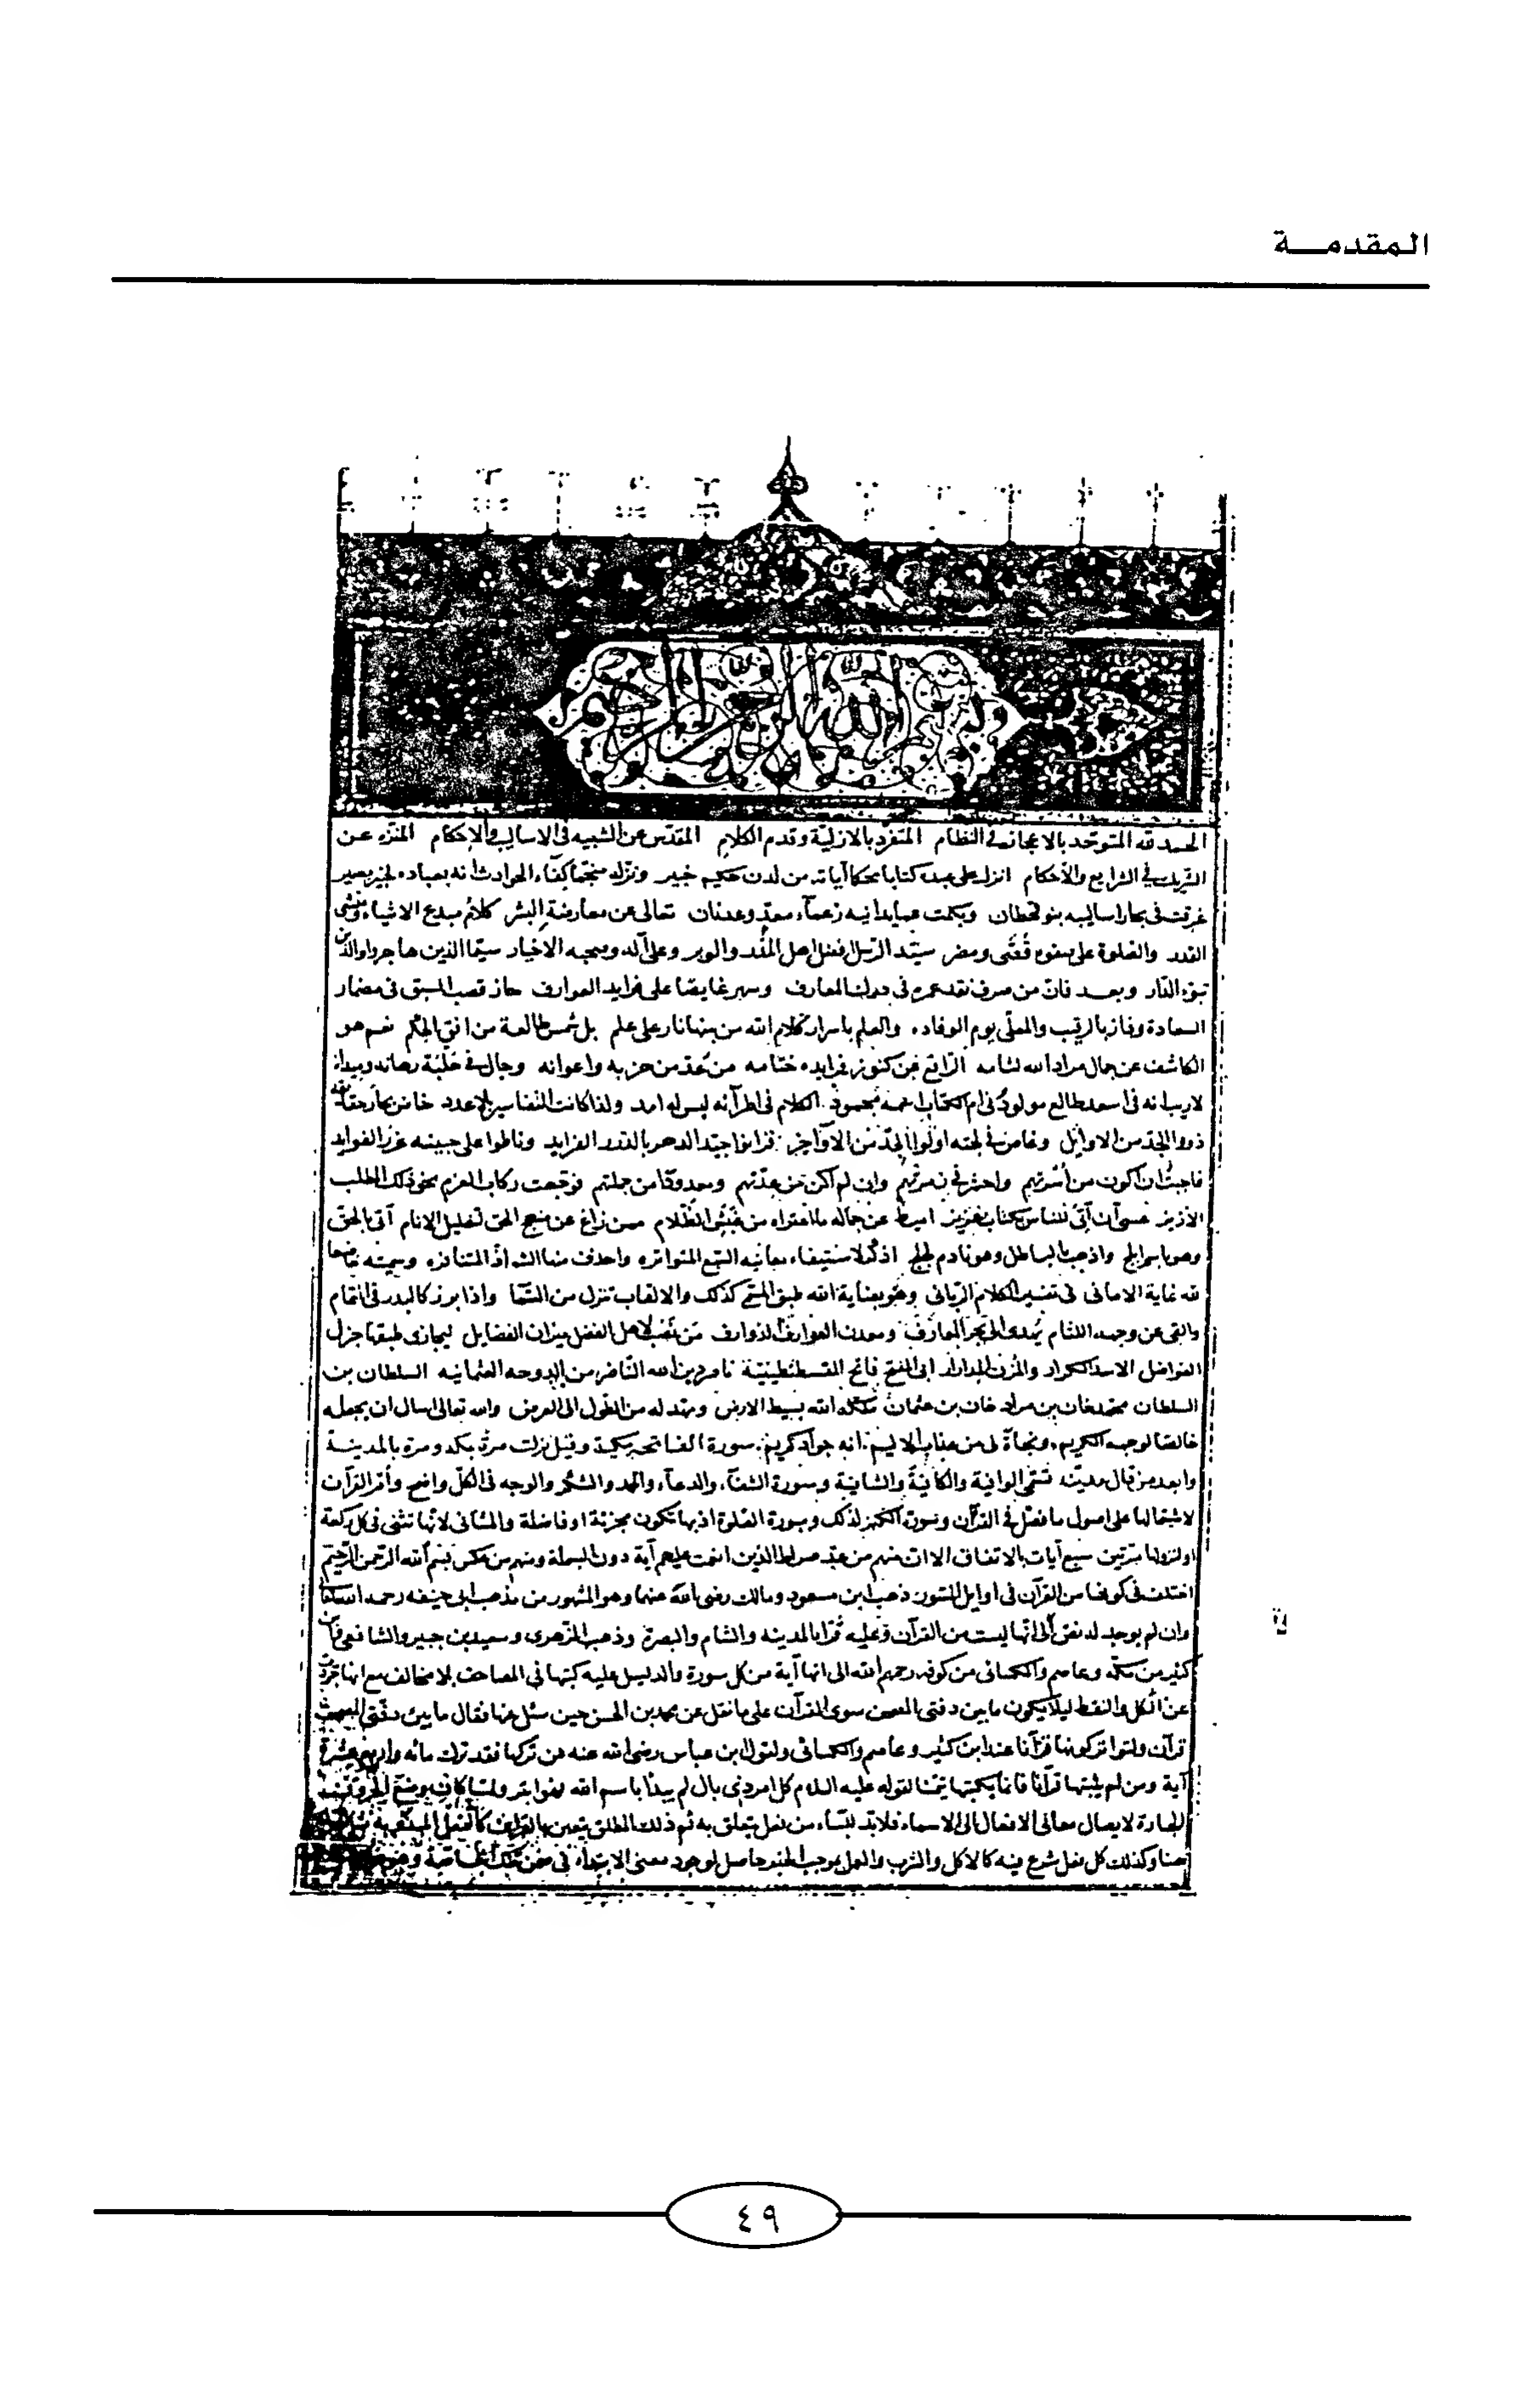 المقدمـــة
بسم الله الرحمن الرحيم
الحمد لله المتوحد بالاعجاز في النظام المتفرد بالازلية وقدم الكلام المقدس عن الشبيه في الاساليب والاحكام المنزه عن
الشريك في الشرايع والأحكام انزل على عبده كتابا محكما آياته من لدن حكيم خبير ونزله منجما كفاء الحوادث انه بعباده لخبير بصير
غرقت في بحار اساليبه بنو قحطان وبكمت زعماء معد وعدنان تعالى عن معارضة البشر كلام مبدع الاشياء ومنشئ
القدر والصلوة على صفوة قصي ومضر سيد الرسل افضل اهل المدر والوبر وعلى آله وصحبه الاخيار سيما الذين هاجروا والذين
تبوء الدار وبعد فان من صرف نقد عمره في درك المعارف وسهر غايصا على فرايد العوارف حاز قصب السبق في مضمار
السعادة وفاز بالرقيب والمعلى يوم الوفاده والعلم باسرار كلام الله من بينها نار على علم بل شمس طالعة من افق الحكم نعم هو
الكاشف عن جمال مراد الله لثامه الرافع عن كنوز فرايده ختامه من عد من حزبه واعوانه وجال في حلبة رهانه وميدانه
لا ريب انه في اسعد طالع مولود في ام الكتاب اسمه محمود الكلام في اطرآئه ليس له امد ولذا كانت التفاسير بلا عدد خاض بحار
ذووا الجد من الاوايل وغاص في لجته اولوا الجد من الآواخر فزانوا جيد الدهر بالدرر الفرايد وناطوا على جبينه غرر الفوايد
فاحببت ان اكون من اسرتهم واحشر في زمرتهم وان لم اكن من عدتهم ومعدودا من جملتهم فوجهت ركاب العزم نحو ذلك الطلب
عسى ان آتي للناس بكتاب عزيز اميط عن جماله ما اعتراه من غبش الظلام ممن زاغ عن منهج الحق تضليل الانام آتي بالحق
وهو باسم ابلج واذهب بالباطل وهو نادم لجلج اذكر لاستيفاء معانيه السبع المتواتره واحذف منها الشواذ المتنافره وسميته
غاية الاماني في تفسير الكلام الرباني وهو بعناية الله طبق المسمى كذلك والالقاب تنزل من السما واذا برز كالبدر في التمام
والقى عن وجهه اللثام يهدى الى بحر المعارف ومعدن العوارف الذوارف من نصب لاهل الفضل ميزان الفضايل ليجازى طبقها جزل
الفواضل الاسد الكرار والمزن المدرار ابي الفتح فاتح القسطنطينية ناصر دين الله الناضر من الدوحه العثمانيه السلطان بن
السلطان محمد خان بن مراد خان بن عثمان ملكه الله بسيط الارض ومهد له من الطول الى العرض والله تعالى اسال ان يجعله
خالصا لوجهه الكريم ونجاة لي من عذابه الاليم انه جواد كريم سورة الفاتحه مكية وقيل نزلت مرة بمكه ومرة بالمدينة
قال مدنيه تسمى الوافية والكافية والشافية وسورة الشفآء والدعآء والحمد والشكر والوجه في الكل واضح وأم القرآن
لاشتمالها على اصول ما فصل في القرآن وسورة الكنز لذلك وسورة الصلوة اذ بها تكون مجزئة او فاضلة والمثاني لانها تثنى في كل ركعة
او لنزولها مرتين سبع آيات بالاتفاق الا ان منهم من عد صراط الذين انعمت عليهم آية دون البسملة ومنهم من عكس بسم الله الرحمن الرحيم
اختلف في كونها من القرآن في اوايل السور ذهب ابن مسعود ومالك رضي الله عنهما وهو المشهور من مذهب ابي حنيفه رحمه الله
وان لم يوجد له نص الى انها ليست من القرآن وعليه قرا المدينه والشام والبصرة وذهب الزهري وسعيد بن جبير والشافعي
كثير من مكه وعاصم والكسائي من كوفه رحمهم الله الى انها آية من كل سورة والدليل عليه كتبها في المصاحف بلا مخالف مع انها
عن الكل والنقط ليلا يكون ما بين دفتي المصحف سوى القرآن على ما نقل عن محمد بن الحسن حين سئل عنها فقال ما بين دفتي المصحف
قرآن ولتواتر كونها قرآنا عند ابن كثير وعاصم والكسائي ولقول ابن عباس رضي الله عنه من تركها فقد ترك مائه واربع عشرة
آية ومن لم يثبتها قرآنا فانما يكتبها تيمنا لقوله عليه السلام كل امر ذي بال لم يبدأ باسم الله فهو ابتر ولما كان وضع الحروف
الجارة لايصال معاني الافعال الى الاسماء فلا بد للباء من فعل يتعلق به ثم ذلك المطلق يتعين بالقراين
هنا وكذلك كل فعل شرع فيه كالاكل والشرب والعمل بوجب الخبر حاصل لوجود معنى الابتداء في ضمن تلك
٤٩